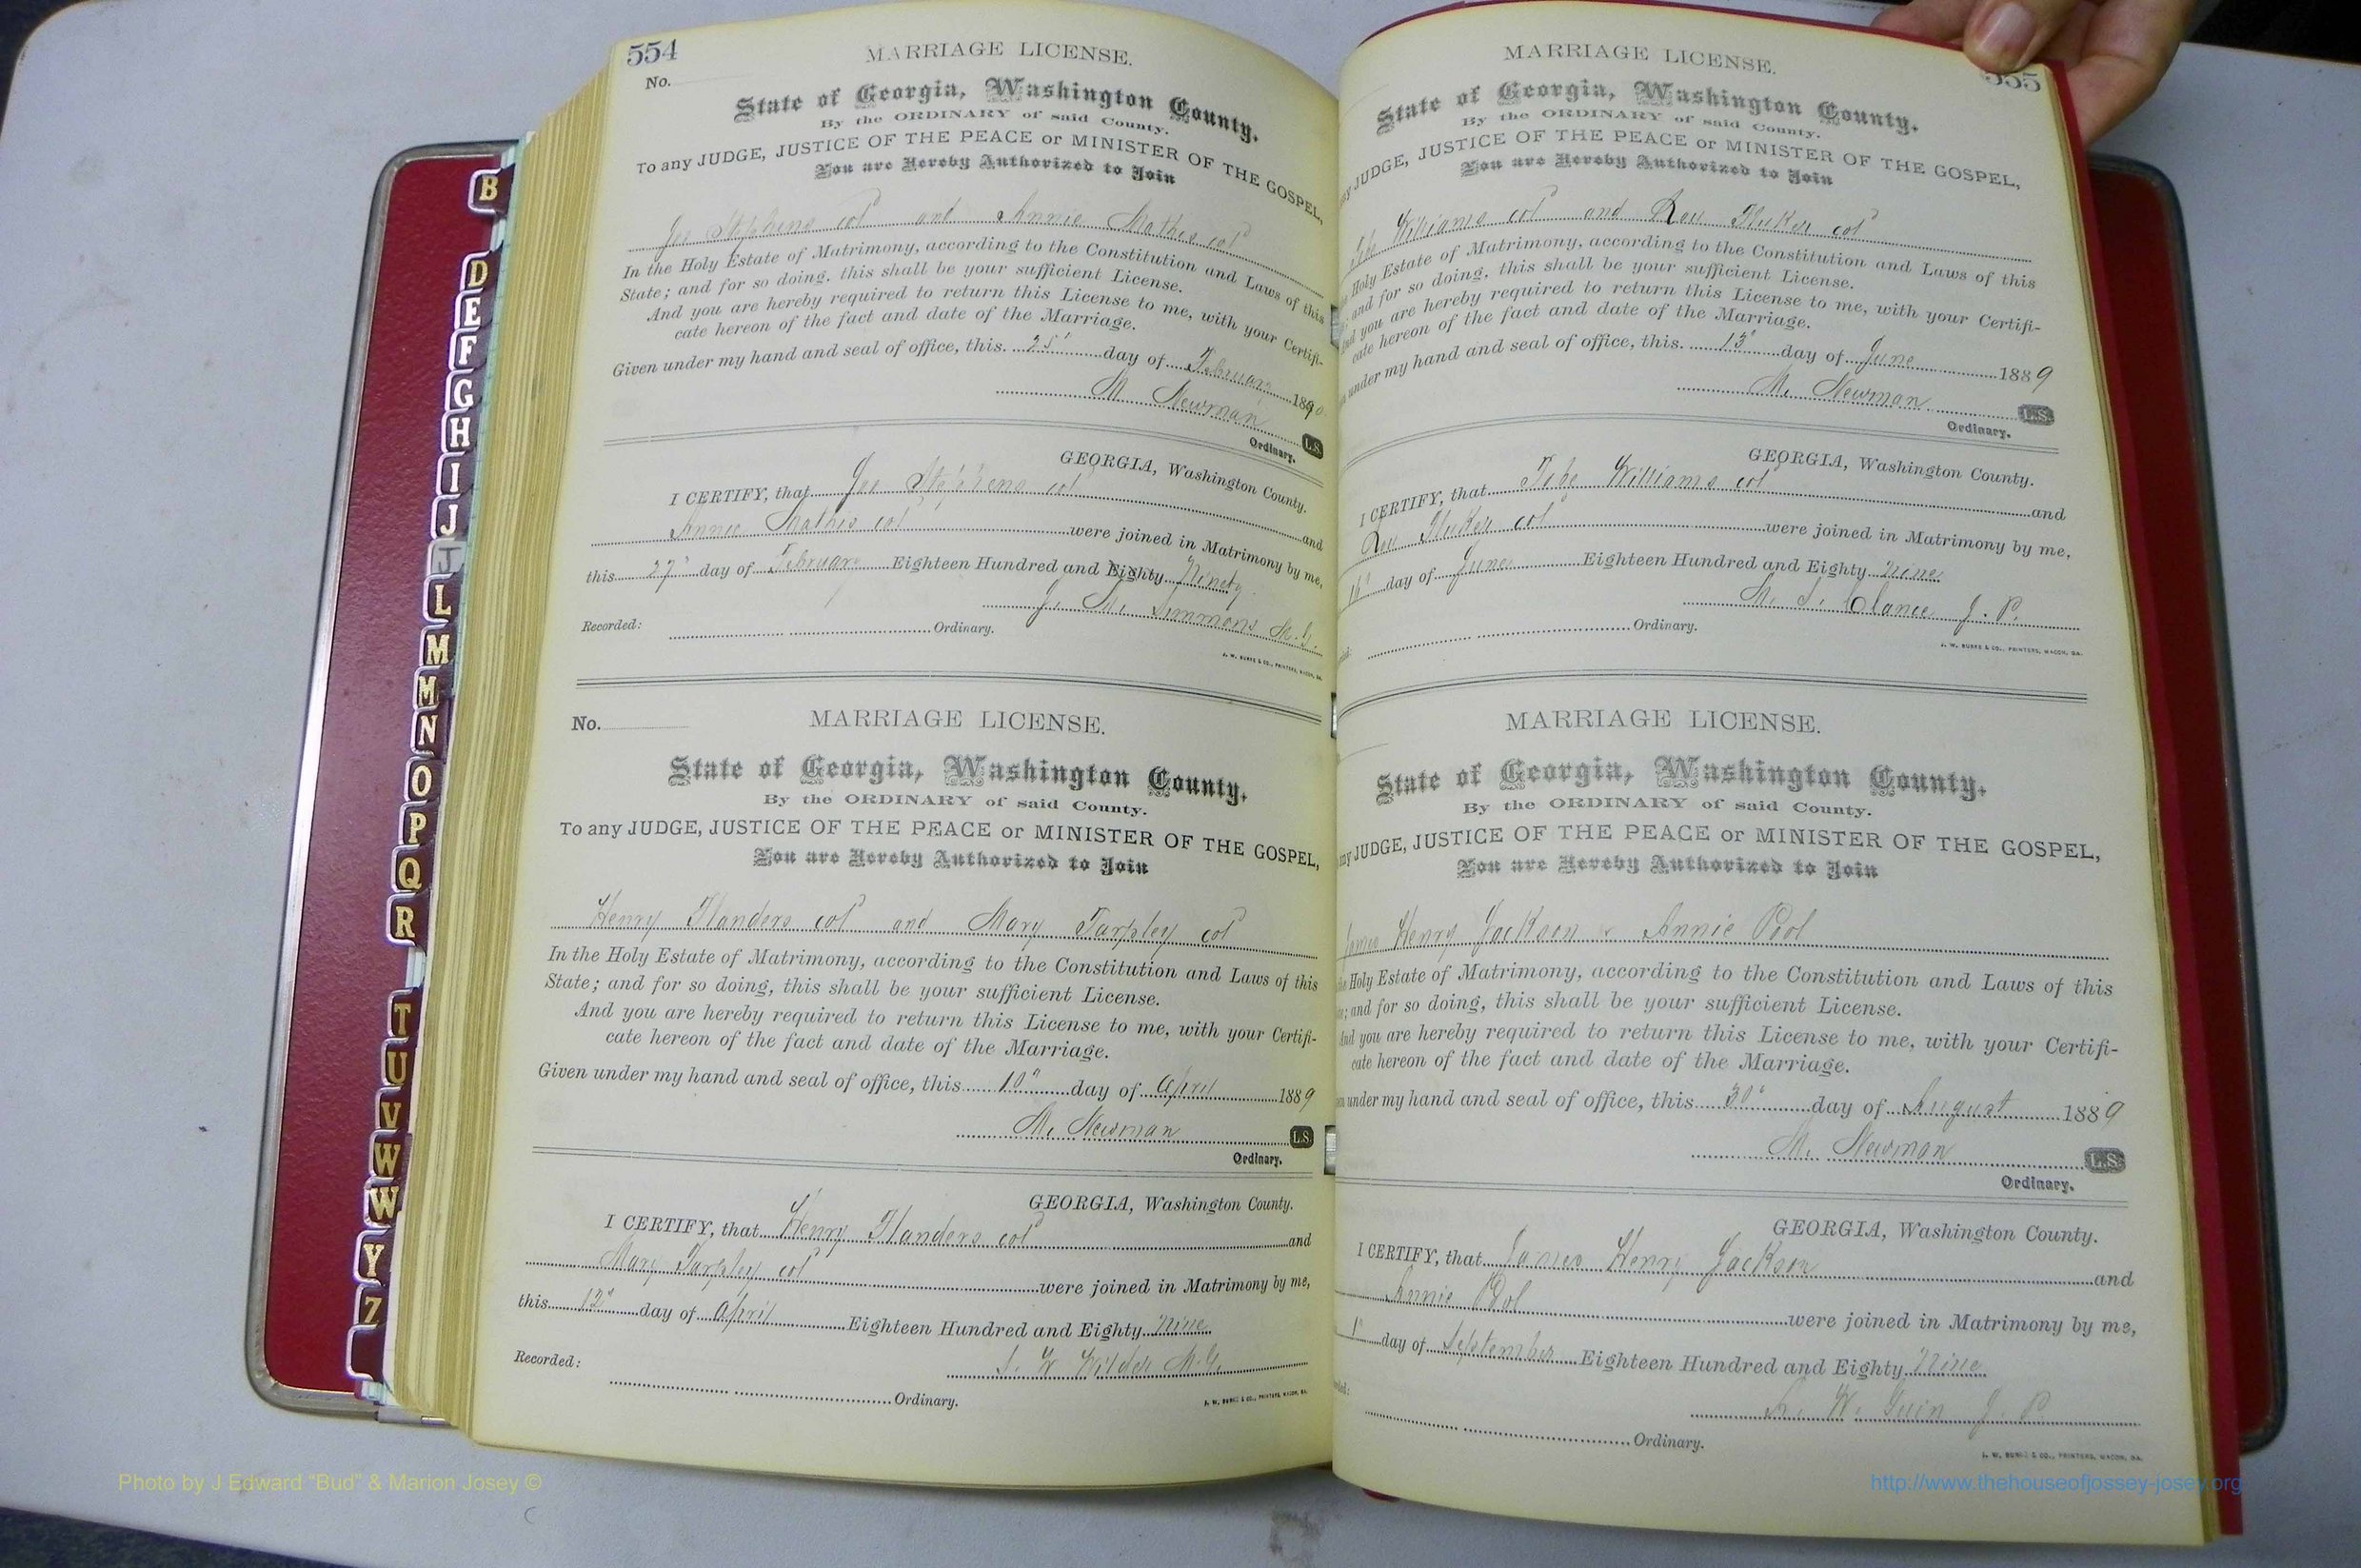 554
MARRIAGE LICENSE.
No.
State of Georgia, Washington County.
By the ORDINARY of said County.
To any JUDGE, JUSTICE OF THE PEACE or MINISTER OF THE GOSPEL,
You are Hereby Authorized to Join
Joe Stephens col and Annie Mathis col
In the Holy Estate of Matrimony, according to the Constitution and Laws of this
State; and for so doing, this shall be your sufficient License.
And you are hereby required to return this License to me, with your Certifi-
cate hereon of the fact and date of the Marriage.
Given under my hand and seal of office, this 25" day of February 1890
M. Newman L.S.
Ordinary.
GEORGIA, Washington County.
I CERTIFY, that Joe Stephens col and
Annie Mathis col were joined in Matrimony by me,
this 27" day of February Eighteen Hundred and Eighty Ninety
J. M. Simmons M.G.
Recorded: Ordinary.
J. W. BURKE & CO., PRINTERS, MACON, GA.
No.
MARRIAGE LICENSE.
State of Georgia, Washington County.
By the ORDINARY of said County.
To any JUDGE, JUSTICE OF THE PEACE or MINISTER OF THE GOSPEL,
You are Hereby Authorized to Join
Henry Flanders col and Mary Tarpley col
In the Holy Estate of Matrimony, according to the Constitution and Laws of this
State; and for so doing, this shall be your sufficient License.
And you are hereby required to return this License to me, with your Certifi-
cate hereon of the fact and date of the Marriage.
Given under my hand and seal of office, this 10" day of April 1889
M. Newman L.S.
Ordinary.
GEORGIA, Washington County.
I CERTIFY, that Henry Flanders col and
Mary Tarpley col were joined in Matrimony by me,
this 12" day of April Eighteen Hundred and Eighty nine
S. W. Wilder M.G.
Recorded: Ordinary.
J. W. BURKE & CO., PRINTERS, MACON, GA.
555
MARRIAGE LICENSE.
State of Georgia, Washington County.
By the ORDINARY of said County.
any JUDGE, JUSTICE OF THE PEACE or MINISTER OF THE GOSPEL,
You are Hereby Authorized to Join
Tobe Williams col and Lou Fluker col
Holy Estate of Matrimony, according to the Constitution and Laws of this
and for so doing, this shall be your sufficient License.
And you are hereby required to return this License to me, with your Certifi-
cate hereon of the fact and date of the Marriage.
under my hand and seal of office, this 13" day of June 1889
M. Newman L.S.
Ordinary.
GEORGIA, Washington County.
I CERTIFY, that Tobe Williams col and
Lou Fluker col were joined in Matrimony by me,
16" day of June Eighteen Hundred and Eighty nine
J. P.
Ordinary.
J. W. BURKE & CO., PRINTERS, MACON, GA.
MARRIAGE LICENSE.
State of Georgia, Washington County.
By the ORDINARY of said County.
any JUDGE, JUSTICE OF THE PEACE or MINISTER OF THE GOSPEL,
You are Hereby Authorized to Join
James Henry Jackson & Annie Pool
Holy Estate of Matrimony, according to the Constitution and Laws of this
and for so doing, this shall be your sufficient License.
And you are hereby required to return this License to me, with your Certifi-
cate hereon of the fact and date of the Marriage.
under my hand and seal of office, this 30" day of August 1889
M. Newman L.S.
Ordinary.
GEORGIA, Washington County.
I CERTIFY, that James Henry Jackson and
Annie Pool were joined in Matrimony by me,
1" day of September Eighteen Hundred and Eighty nine
W. Guin J. P.
Ordinary.
J. W. BURKE & CO., PRINTERS, MACON, GA.
B
D
E
F
G
H
I
J
J
L
M
M
N
O
P
Q
R
T
U
V
W
W
Y
Z
Photo by J Edward "Bud" & Marion Josey ©
http://www.thehouseofjossey-josey.org